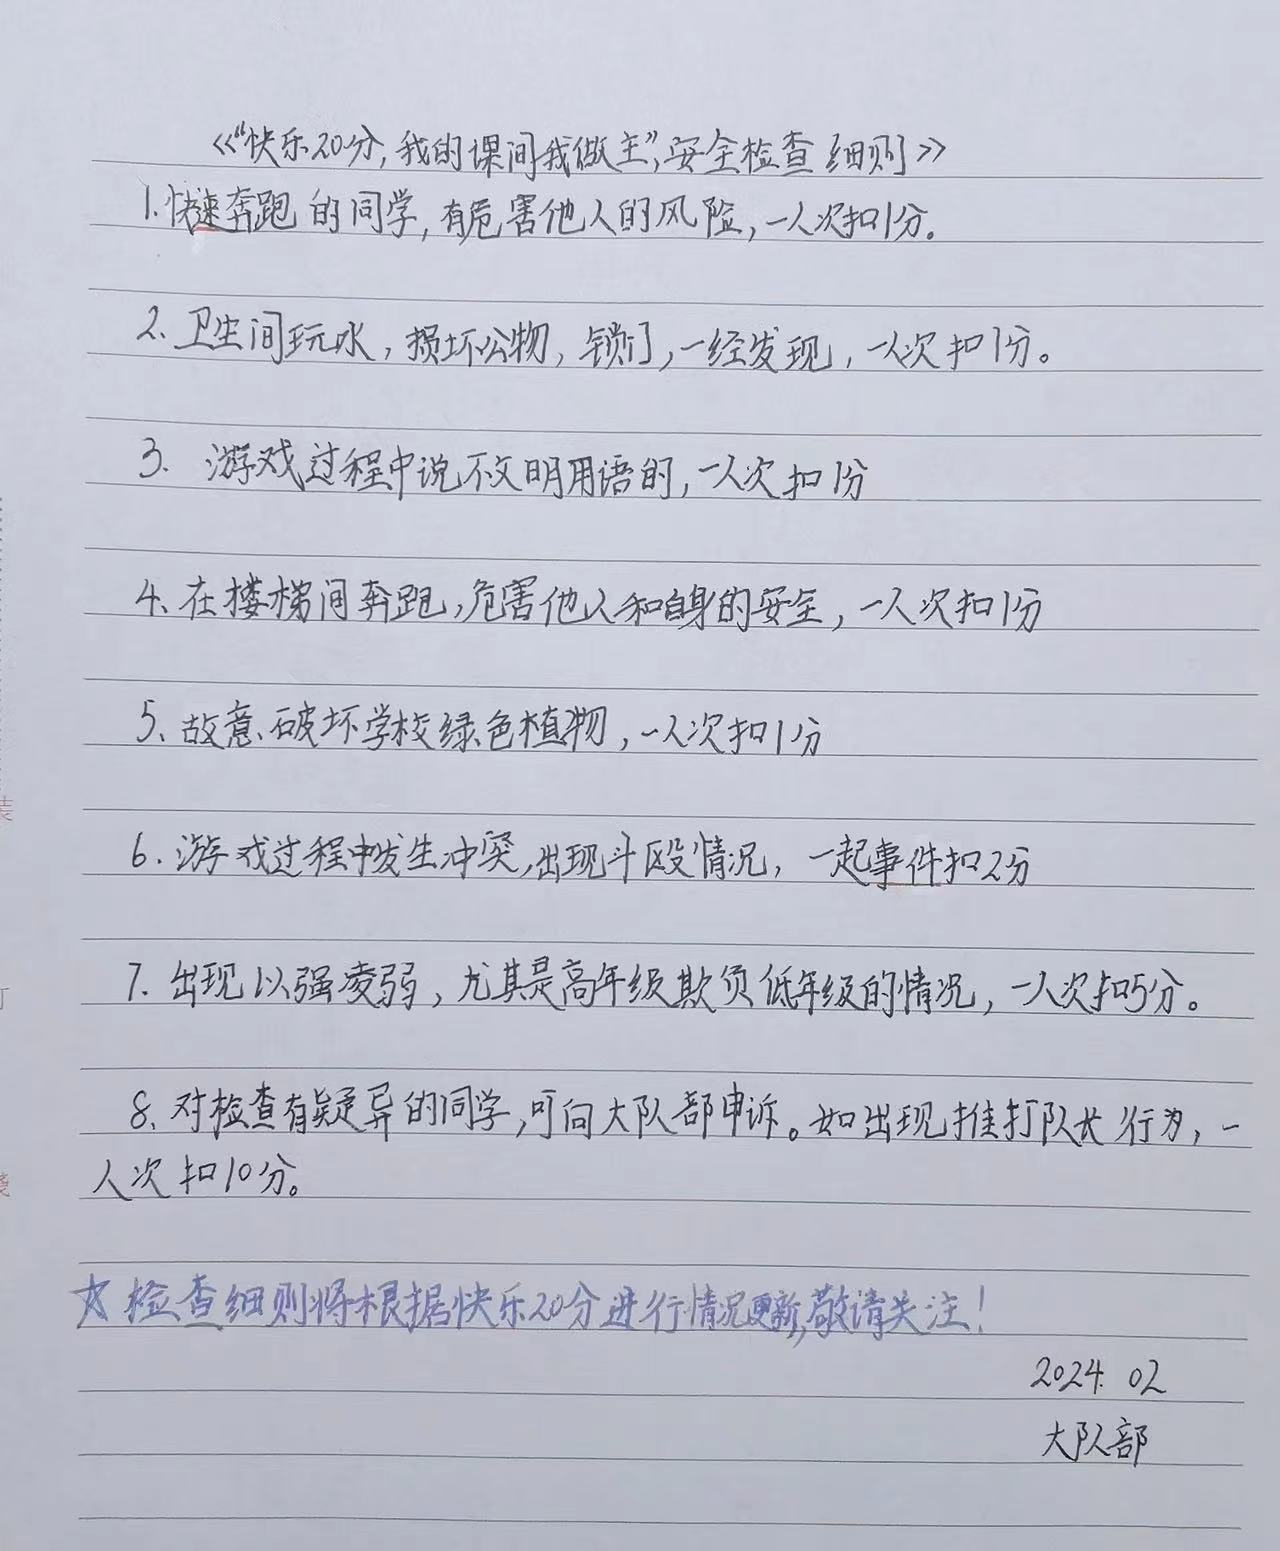 《“快乐20分,我的课间我做主”,安全检查细则》
1.快速奔跑的同学,有危害他人的风险,一人次扣1分.
2.卫生间玩水,损坏公物,锁门,一经发现,一人次扣1分。
3. 游戏过程中说不文明用语的,一人次扣1分
4.在楼梯间奔跑,危害他人和自身的安全,一人次扣1分
5、故意破坏学校绿色植物,一人次扣1分
6.游戏过程中发生冲突,出现斗殴情况,一起事件扣2分
7.出现以强凌弱,尤其是高年级欺负低年级的情况,一人次扣5分。
8.对检查有疑异的同学,可向大队部申诉。如出现推打队长行为,一
人次扣10分。
☆检查细则将根据快乐20分进行情况更新,敬请关注!
2024.02
大队部
装
订